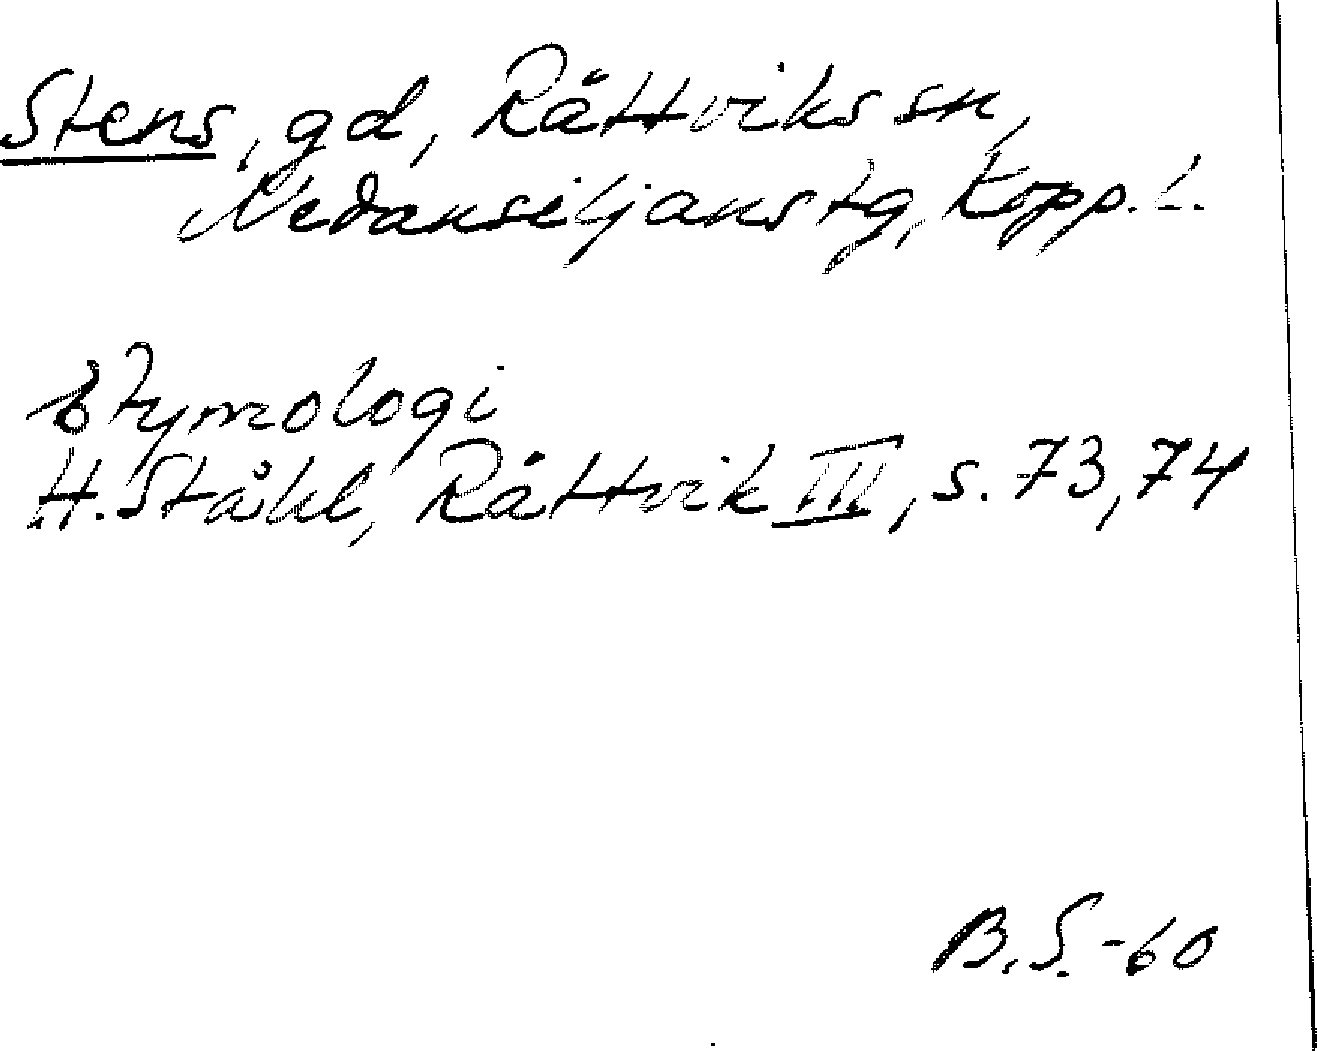 Stens, gd, Rättviks sn,
Nedansiljans tg, Kopp. l.
Etymologi
H. Ståhl, Rättvik III, s. 73, 74
B.S.-60